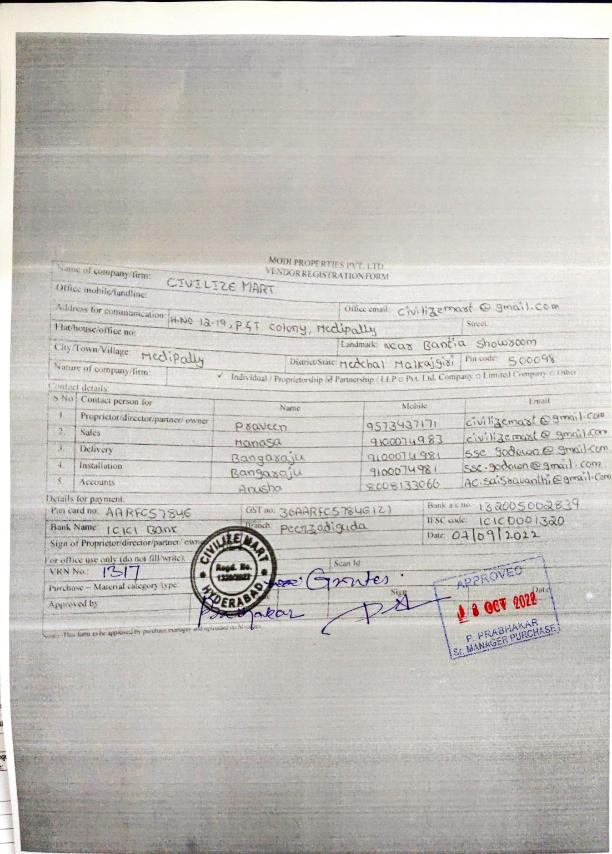 MODI PROPERTIES PVT. LTD.
VENDOR REGISTRATION FORM
Name of company/firm: CIVILIZE MART
Office mobile/landline: Office email: civilizemart@gmail.com
Address for communication: H.NO 12-19, P&T colony, Medipally Street:
Flat/house/office no: Landmark: near Bantia Showroom
City/Town/Village: Medipally District/State: Medchal Malkajgiri Pin code: 500098
Nature of company/firm: Individual / Proprietorship Partnership / LLP Pvt. Ltd. Company Limited Company Other
Contact details:
S No Contact person for Name Mobile Email
1. Proprietor/director/partner/ owner Praveen 9573437171 civilizemart@gmail.com
2. Sales Manasa 9100074983 civilizemart@gmail.com
3. Delivery Bangaraju 9100074981 ssc.godown@gmail.com
4. Installation Bangaraju 9100074981 ssc.godown@gmail.com
5. Accounts Anusha 8008133066
Details for payment:
Pan card no: AARFC5784G GST no: Bank a/c no: 132005002839
Bank Name: ICICI Bank Branch: Peerzadiguda IFSC code: ICIC0001320
Sign of Proprietor/director/partner/ owner Date: 07/09/2022
For office use only (do not fill/write).
VRN No.: 1317 Scan Id
Purchase – Material category type:
Approved by Prabhakar Sign Date
Note: This form to be approved by purchase manager and uploaded on
CIVILIZE MART
Regd. No.
HYDERABAD
APPROVED
18 OCT 2022
P. PRABHAKAR
Sr. MANAGER PURCHASE